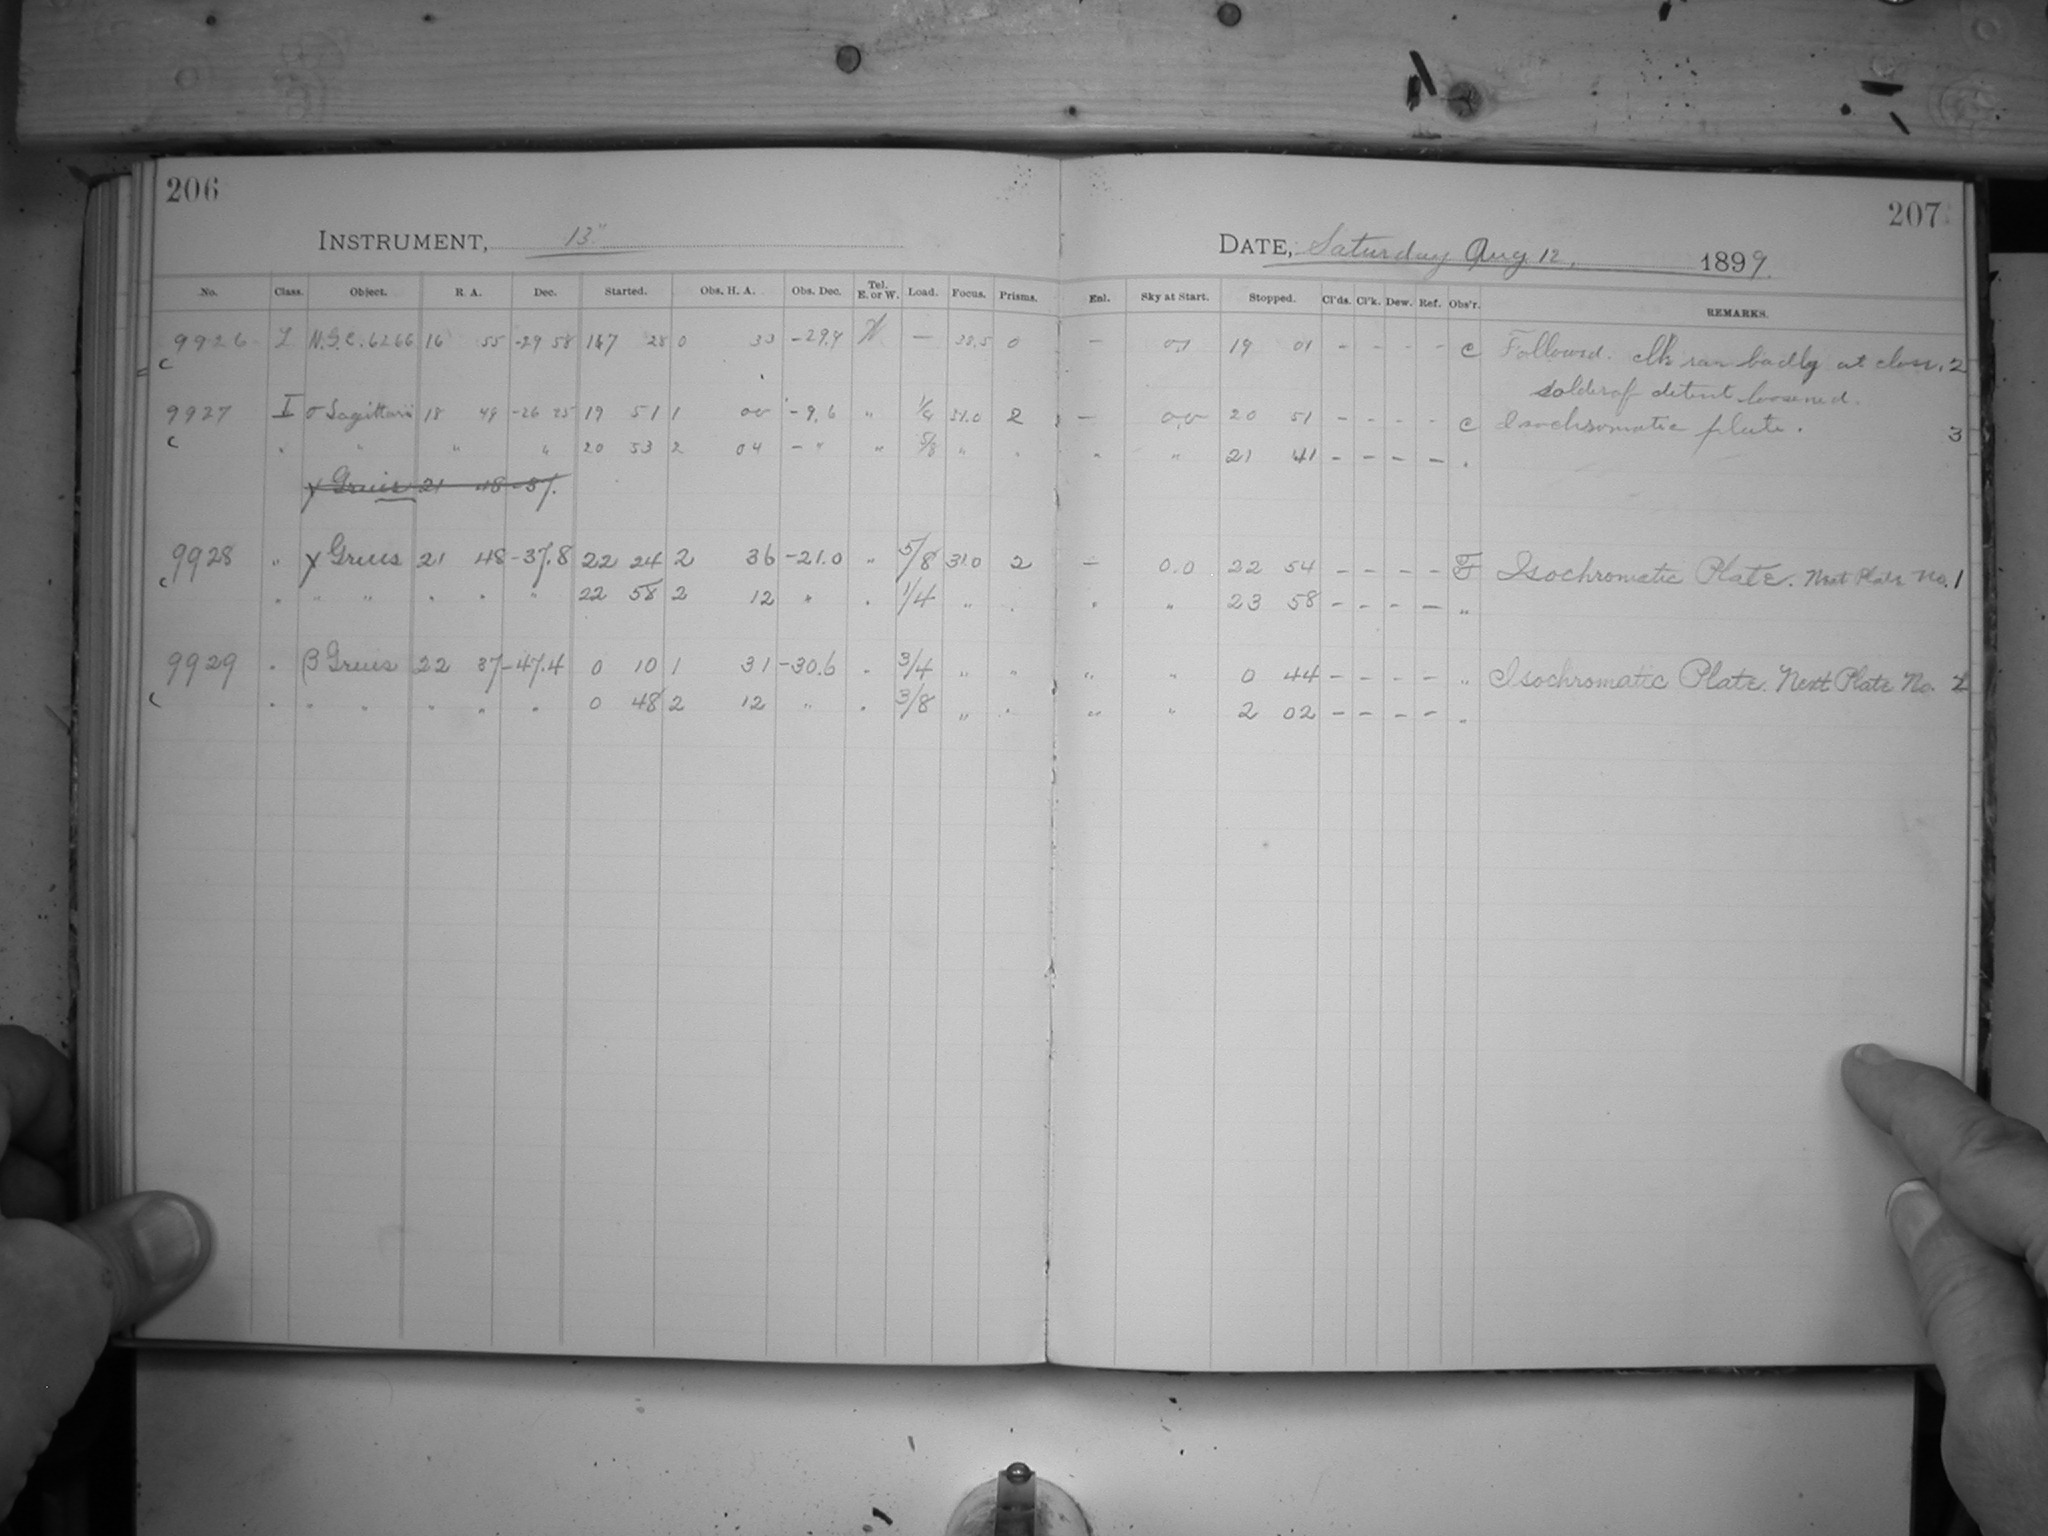 206
207
INSTRUMENT, 13"
DATE, Saturday Aug 12, 1899.
No. Class. Object. R. A. Dec. Started. Obs. H. A. Obs. Dec. Tel. E. or W. Load. Focus. Prisms. Enl. Sky at Start. Stopped. Cl'ds. Cl'k. Dew. Ref. Obs'r. REMARKS.
9926 L N.G.C. 6266 16 55 -29 58 17 28 0 33 -29.9 W — 30.5 0 — 0.1 19 01 - - - - C Followed. clk ran badly at close. 2
c solder of detent loosened.
9927 I σ Sagittarii 18 49 -26 25 19 51 1 00 -9.6 " 1/4 31.0 2 — 0.0 20 51 - - - - C Isochromatic plate. 3
c " " " " 20 53 2 04 - " " 5/8 " " " " 21 41 - - - - "
γ Gruis 21 48 -37.
9928 " γ Grus 21 48 -37.8 22 24 2 36 -21.0 " 5/8 31.0 2 — 0.0 22 54 - - - - F Isochromatic Plate. Next Plate No. 1
c " " " " " " 22 58 2 12 " " 1/4 " " " " 23 58 - - - - "
9929 " β Grus 22 37 -47.4 0 10 1 31 -30.6 " 3/4 " " " " 0 44 - - - - " Isochromatic Plate. Next Plate No. 2
c " " " " " " 0 48 2 12 " " 3/8 " " " " 2 02 - - - - "